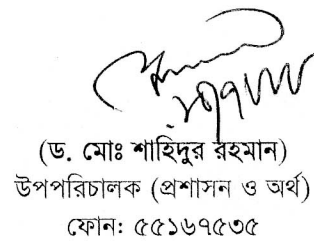 (ড. মোঃ শাহিদুর রহমান)
উপপরিচালক (প্রশাসন ও অর্থ)
ফোন: ৫৫১৬৭৫৩৫